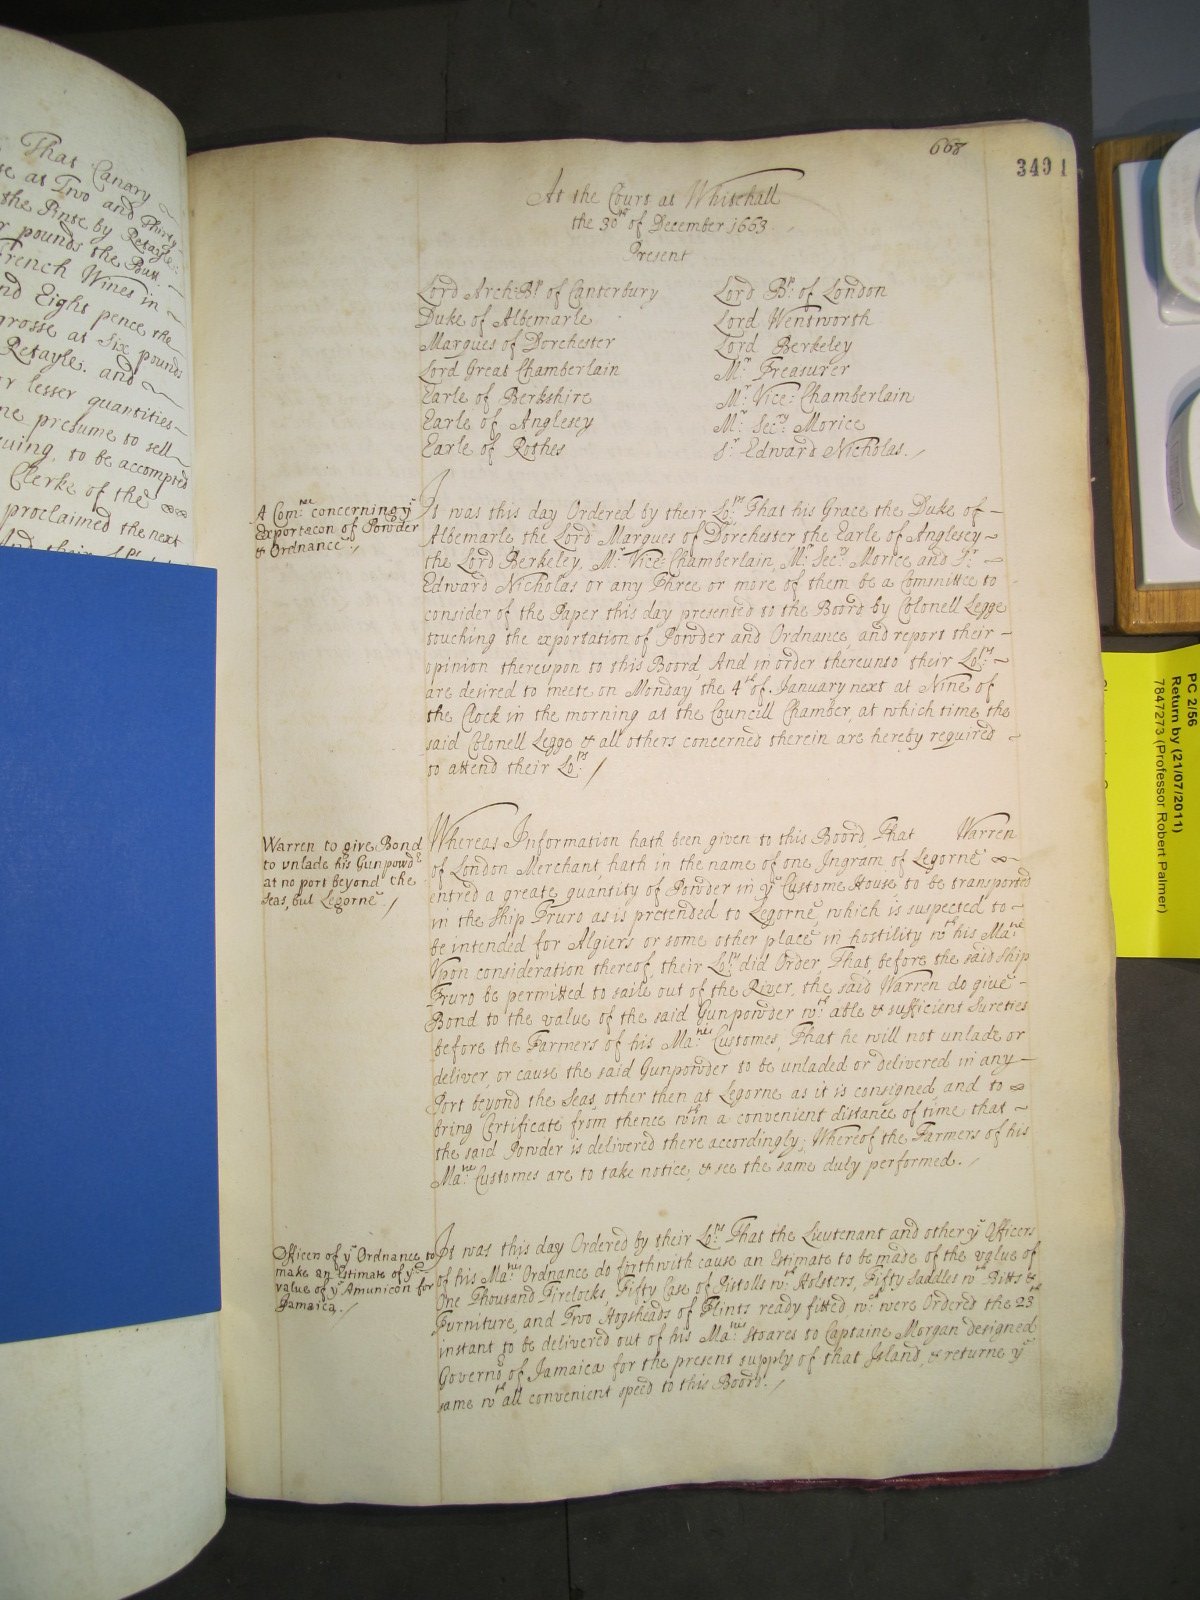 That Canary
as Two and Thirty
the Pinte by Retayle:
pounds the Butt.
French Wines in
nd Eight pence the
grosse at Six pounds
Retayle. and
or lesser quantities
me presume to sell
uing, to be accompted
Clerke of the
proclaimed the next
668
349 1
At the Court at Whitehall
the 30th of December 1663.
Present
Lord Arch:Bp of Canterbury
Duke of Albemarle
Marques of Dorchester
Lord Great Chamberlain
Earle of Berkshire
Earle of Anglesey
Earle of Rothes
Lord Bp: of London
Lord Wentworth
Lord Berkeley
Mr Treasurer
Mr Vice: Chamberlain
Mr Secry: Morice
Sr Edward Nicholas.
A Comttee concerning ye
Exportacon of Powder
& Ordnance.
It was this day Ordered by their Lops That his Grace the Duke of
Albemarle the Lord Marques of Dorchester the Earle of Anglesey
the Lord Berkeley, Mr Vice: Chamberlain, Mr Secry Morice and Sr
Edward Nicholas or any Three or more of them be a Committee to
consider of the Paper this day presented to the Board by Colonell Legge
touching the exportation of Powder and Ordnance, and report their
opinion thereupon to this Board, And in order thereunto their Lops
are desired to meete on Monday the 4th of January next at Nine of
the Clock in the morning at the Councill Chamber, at which time the
said Colonell Legge & all others concerned therein are hereby required
to attend their Lops
Warren to give Bond
to unlade his Gunpowdr
at no port beyond the
Seas, but Legorne
Whereas Information hath been given to this Board, That Warren
of London Merchant, hath in the name of one Ingram of Legorne
entred a greate quantity of Powder in ye Custome House to be transported
in the Ship Truro as is pretended to Legorne, which is suspected to
be intended for Algiers or some other place in hostility wth his Matie
Upon consideration thereof, their Lops did Order, That, before the said Ship
Truro be permitted to saile out of the River, the said Warren do give
Bond to the value of the said Gunpowder wth able & sufficient Sureties
before the Farmers of his Maties Customes, That he will not unlade or
deliver, or cause the said Gunpowder to be unladed or delivered in any
Port beyond the Seas, other then at Legorne as it is consigned, and to
bring Certificate from thence wthin a convenient distance of time that
the said Powder is delivered there accordingly; Whereof the Farmers of his
Maties Customes are to take notice, & see the same duly performed.
Officers of ye Ordnance to
make an Estimate of ye
value of ye Amunicon for
Jamaica.
It was this day Ordered by their Lops That the Lieutenant and other ye Officers
of his Maties Ordnance do forthwith cause an Estimate to be made of the value of
One Thousand Firelocks, Fifty Case of Pistolls wth Holsters, Fifty Saddles wth Bitts &
Furniture, and Two Hogsheads of Flints ready fitted wch were Ordered the 23th
instant to be delivered out of his Maties Stoares to Captaine Morgan designed
Governor of Jamaica for the present supply of that Island, & returne ye
same wth all convenient speed to this Board.
PC 2/56
Return by (21/07/2011)
7847273 (Professor Robert Palmer)